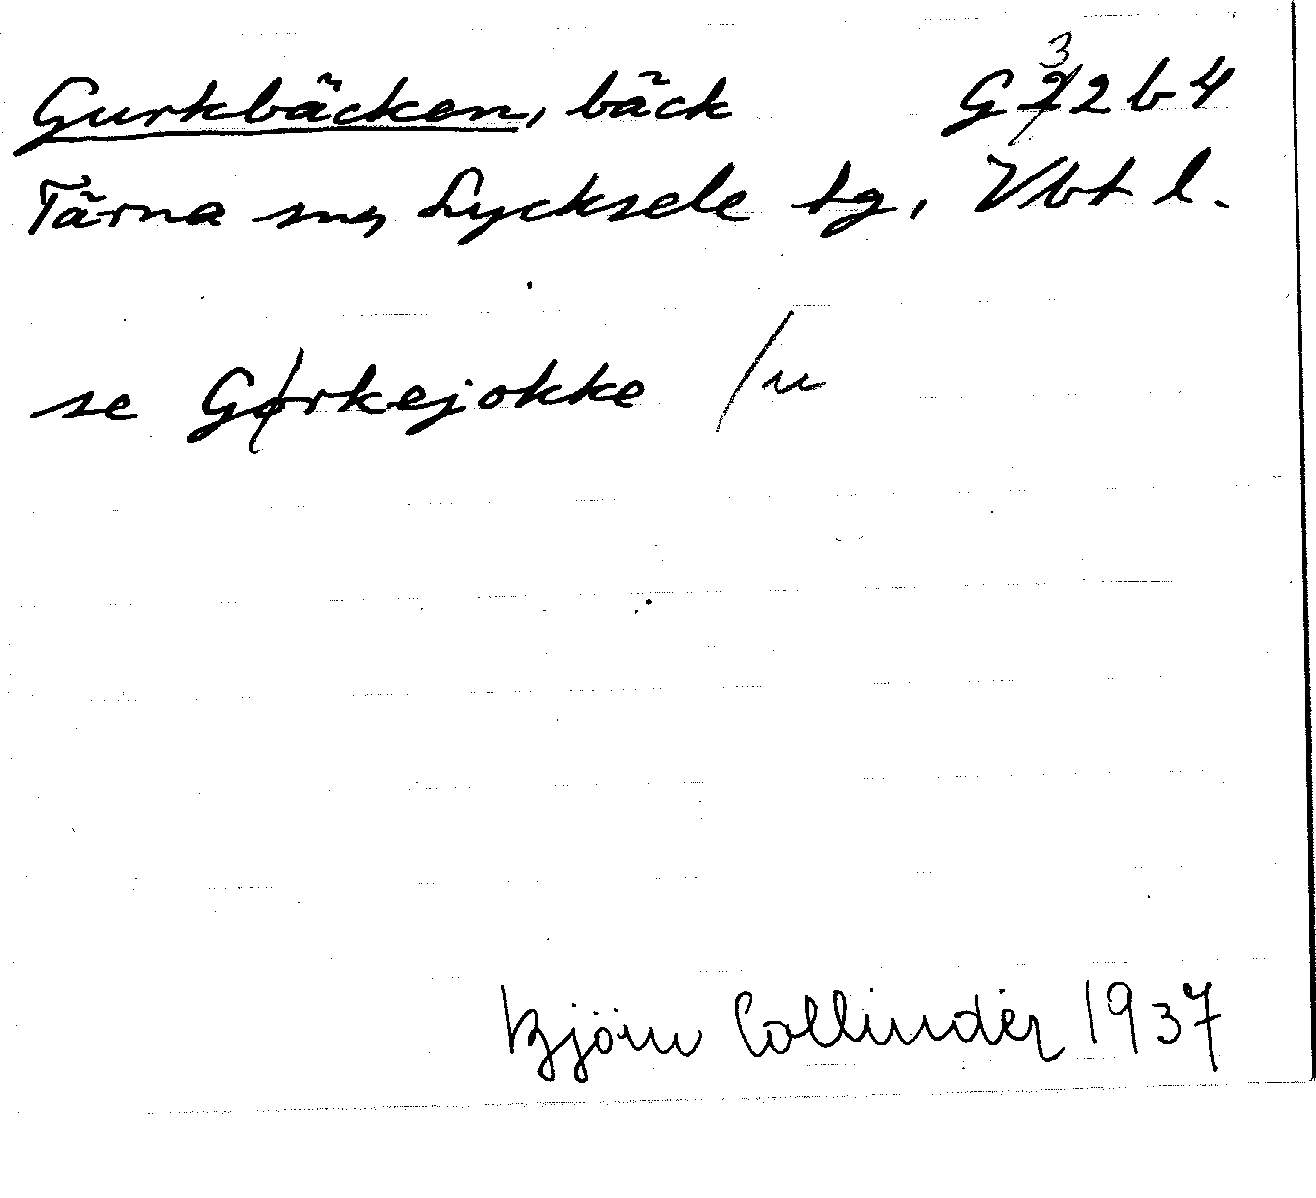 Gurkbäcken, bäck G 32 b 4
Tärna sn, Lycksele tg, Vbt l.
se Gurkejokke /u
Björn Collinder 1937